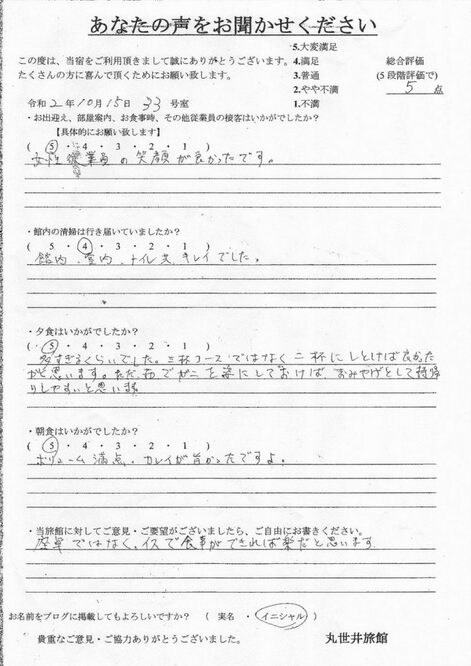 あなたの声をお聞かせください
5.大変満足
この度は、当宿をご利用頂きまして誠にありがとうございます。 4.満足 総合評価
たくさんの方に喜んで頂くためにお願い致します。 3.普通 (5段階評価で)
2.やや不満 5 点
令和2年10月15日 33号室 1.不満
・お出迎え、部屋案内、お食事時、その他従業員の接客はいかがでしたか?
【具体的にお願い致します】
( 5 ・ 4 ・ 3 ・ 2 ・ 1 )
女性従業員の笑顔が良かったです。
・館内の清掃は行き届いていましたか?
( 5 ・ 4 ・ 3 ・ 2 ・ 1 )
館内、室内、トイレ共、キレイでした。
・夕食はいかがでしたか?
( 5 ・ 4 ・ 3 ・ 2 ・ 1 )
多すぎるくらいでした。三杯コースではなく二杯にしとけば良かった
かと思います。ただ、カニを姿にしておけば、おみやげとして持帰
りしやすいと思います
・朝食はいかがでしたか?
( 5 ・ 4 ・ 3 ・ 2 ・ 1 )
ボリューム満点。カレイが旨かったですよ。
・当旅館に対してご意見・ご要望がございましたら、ご自由にお書きください。
座卓ではなく、イスで食事ができれば楽だと思います
お名前をブログに掲載してもよろしいですか? ( 実名 ・ イニシャル )
貴重なご意見・ご協力ありがとうございました。 丸世井旅館